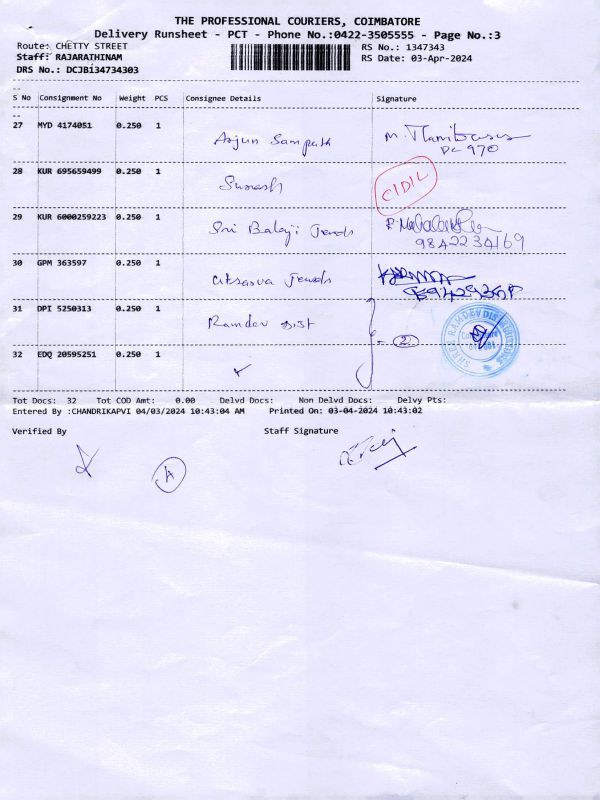 THE PROFESSIONAL COURIERS, COIMBATORE
Delivery Runsheet - PCT - Phone No.:0422-3505555 - Page No.:3
Route: CHETTY STREET
RS No.: 1347343
Staff: RAJARATHINAM
RS Date: 03-Apr-2024
DRS No.: DCJBi34734303
S No Consignment No Weight PCS Consignee Details Signature
27 MYD 4174051 0.250 1 Arjun Sampath
PC 970
28 KUR 695659499 0.250 1 Suresh
29 KUR 6000259223 0.250 1 Sri Balaji Trends
9842234169
30 GPM 363597 0.250 1 Trends
31 DPI 5250313 0.250 1 Ramdev Dist
2
SHREE RAMDEV DISTRIBUTORS
32 EDQ 20595251 0.250 1
Tot Docs: 32 Tot COD Amt: 0.00 Delvd Docs: Non Delvd Docs: Delvy Pts:
Entered By :CHANDRIKAPVI 04/03/2024 10:43:04 AM Printed On: 03-04-2024 10:43:02
Verified By Staff Signature
A